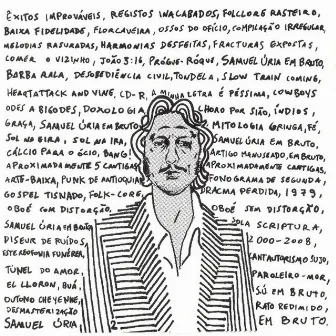 ÊXITOS IMPROVÁVEIS, REGISTOS INACABADOS, FOLCLORE RASTEIRO,
BAIXA FIDELIDADE, FLORCAVEIRA, OSSOS DO OFÍCIO, COMPILAÇÃO IRREGULAR,
MELODIAS RASURADAS, HARMONIAS DESFEITAS, FRACTURAS EXPOSTAS,
COMER O VIZINHO, JOÃO 3:16, PRÓGUE-RÓQUE, SAMUEL ÚRIA EM BRUTO,
BARBA RALA, DESOBEDIÊNCIA CIVIL, TONDELA, SLOW TRAIN COMING,
HEARTATTACK AND VINE, CD-R, A MINHA LETRA É PÉSSIMA, COWBOYS
ODES A BIGODES, DOXOLOGIA CHORO POR SIÃO, ÍNDIOS,
GRAÇA, SAMUEL ÚRIA EM BRUTO MITOLOGIA GRINGA, FÉ,
SOL NA EIRA, SOL NA IRA, SAMUEL ÚRIA EM BRUTO,
CÁLCIO PARA O ÓCIO, BANG! ARTIGO MANUSEADO, EM BRUTO,
APROXIMADAMENTE 5 CANTIGAS, APROXIMADAMENTE CANTIGAS,
ARTE-BAIXA, PUNK DE ANTIOQUIA FONOGRAMA DE SEGUNDA,
GOSPEL TISNADO, FOLK-CORE, DRACMA PERDIDA, 1979,
OBOÉ COM DISTORÇÃO, OBOÉ SEM DISTORÇÃO,
SAMUEL ÚRIA EM BRUTO SOLA SCRIPTURA,
DISEUR DE RUÍDOS, 2000-2008,
ESTEREOFONIA FUNÉREA, CANTAUTORISMO SUJO,
TÚNEL DO AMOR, PAROLEIRO-MOR,
EL LLORON, BUÁ, SÚ EM BRUTO,
OUTONO CHEYENNE, RATO REDIMIDO,
DESMASTERIZAÇÃO EM BRUTO
SAMUEL ÚRIA,